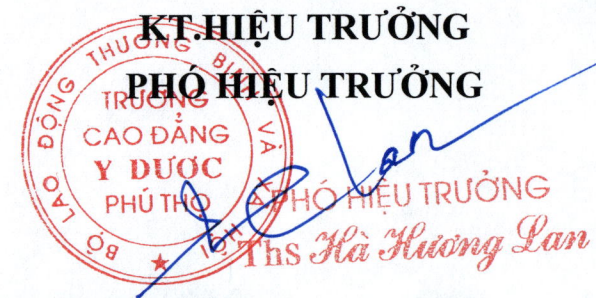 KT.HIỆU TRƯỞNG
PHÓ HIỆU TRƯỞNG
BỘ LAO ĐỘNG THƯƠNG BINH VÀ XÃ HỘI
TRƯỜNG
CAO ĐẲNG
Y DƯỢC
PHÚ THỌ
Lan
PHÓ HIỆU TRƯỞNG
Ths Hà Hương Lan